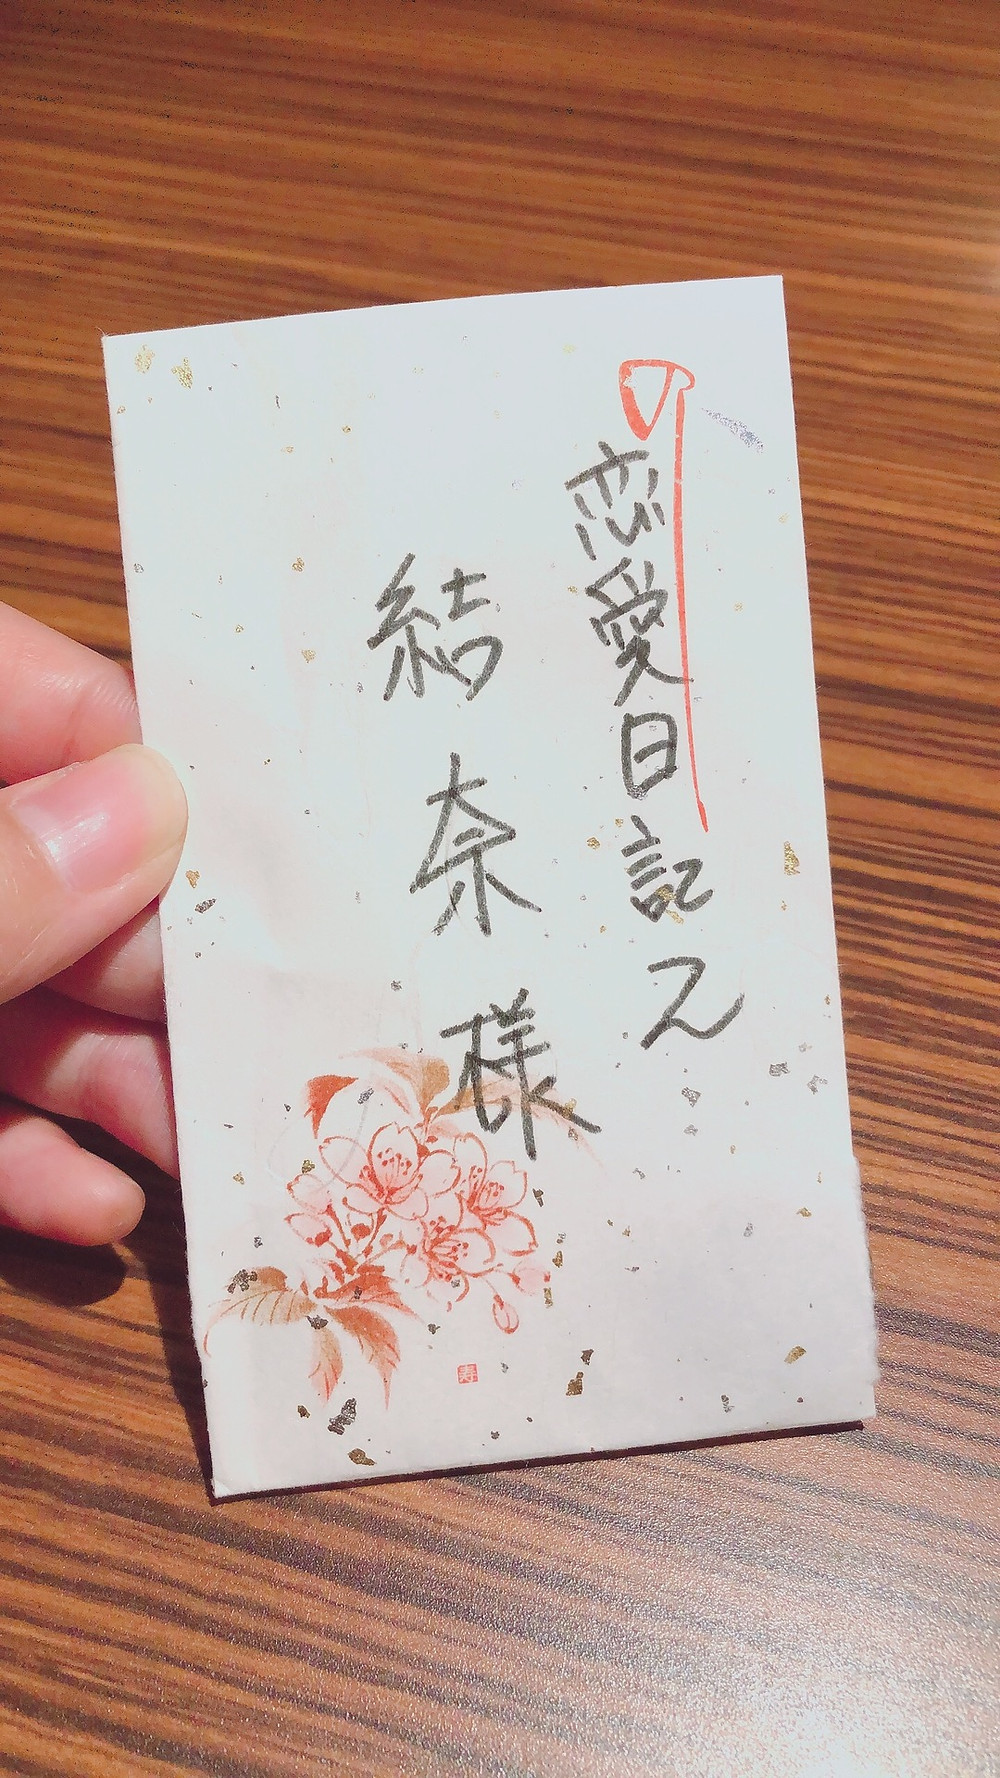 恋愛日記え
結奈様
寿